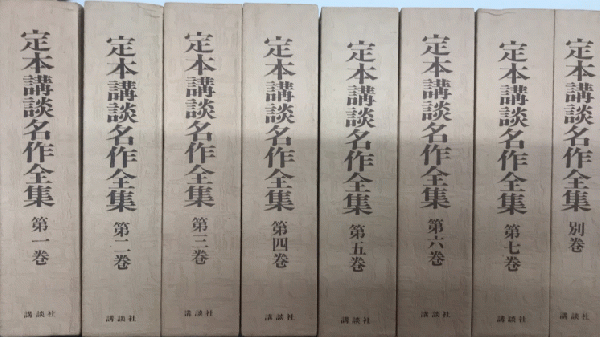 定本講談名作全集 第一巻
講談社
定本講談名作全集 第二巻
講談社
定本講談名作全集 第三巻
講談社
定本講談名作全集 第四巻
講談社
定本講談名作全集 第五巻
講談社
定本講談名作全集 第六巻
講談社
定本講談名作全集 第七巻
講談社
定本講談名作全集 別巻
講談社